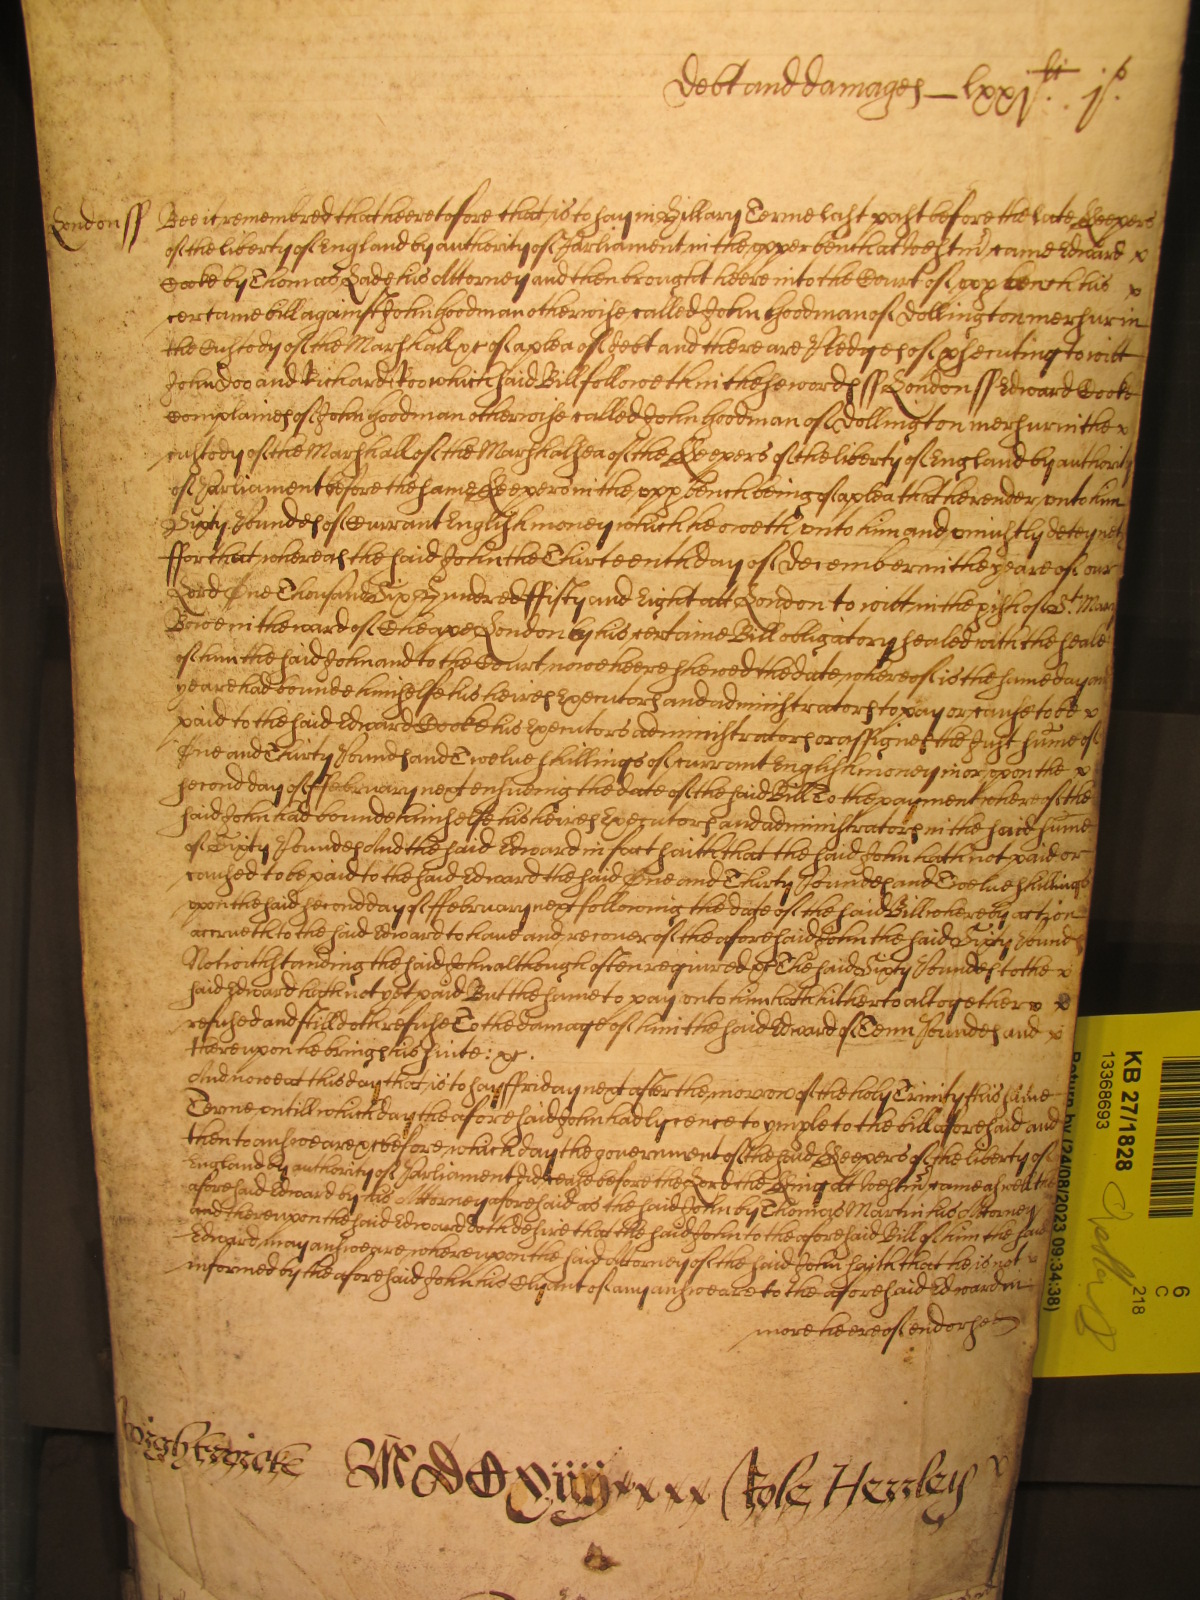 Debt and damages — lxxjli. js.
London ss Bee it remembred that heeretofore that is to say in Hillary Terme last past before the late Keepers
of the liberty of England by authority of Parliament in the upper bench at Westmr came Edward x
Cooke by Thomas his Attorney and then brought heere into the Court of upp bench his x
certaine bill against John Goodman otherwise called John Goodman of Dollington mersur in
the Custody of the Marshall &c of a plea of debt and there are Pledges of psecuting to witt
John Doo and Richard Roo which said Bill followeth in these words ss London ss Edward Cooke
Complaines of John Goodman otherwise called John Goodman of Dollington mersur in the x
custody of the Marshall of the Marshalsea of the Keepers of the liberty of England by authority
of Parliament before the same Keepers in the upp bench being of a plea that he render unto him
Sixty Poundes of Currant English money which he oweth unto him and uniustly deteyneth
ffor that whereas the said John the Thirteenth day of December in the yeare of our
Lord One Thousand Six Hundred ffifty and Eight att London to witt in the pish of St Mary
Bowe in the ward of Cheape London by his certaine Bill obligatory sealed with the seale
of him the said John and to the Court nowe heere shewed the date whereof is the same day and
yeare had bounde himselfe his heires Executors and administrators to pay or cause to be x
paid to the said Edward Cooke his Executors administrators or assignes the Just sume of
One and Thirty Pounds and Twelve shillings of currant English money in or upon the x
second day of ffebruary next ensueing the date of the said Bill To the payment whereof the
said John had bounde himselfe his heires Executors and administrators in the said sume
of Sixty Poundes And the said Edward in fact saith that the said John hath not paid or
caused to be paid to the said Edward the said One and Thirty Poundes and Twelve shillings
upon the said second day of ffebruary next following the date of the said Bill whereby action
accrueth to the said Edward to have and recover of the aforesaid John the said Sixty Pounds
Notwithstanding the said John although often required &c The said Sixty Poundes to the x
said Edward hath not yet paid But the same to pay unto him hath hitherto altogether x x
refused and still doth refuse To the damage of him the said Edward of Tenn Poundes and x
thereupon he brings his suite : &c.
And nowe at this day that is to say ffriday next after the morrow of the holy Trinity this same
Terme untill which day the aforesaid John had lycence to ymple to the bill aforesaid and
then to answeare &c before which day the government of the said Keepers of the liberty of
England by authority of Parliament did cease before the Lord the King att Westmr came aswell the
aforesaid Edward by his Attorney aforesaid as the said John by Thomas Martin his Attorney
and thereupon the said Edward doth desire that the said John to the aforesaid Bill of him the said
Edward may answeare whereupon the said Attorney of the said John saith that he is not x
informed by the aforesaid John his Clyant of any answeare to the aforesaid Edward in
more heereof endorsed
Wightwicke MDCXiiij xxxx Role Henley
KB 27/1828
13368693
Return by (24/08/2023 09:34:38)
218
C
6